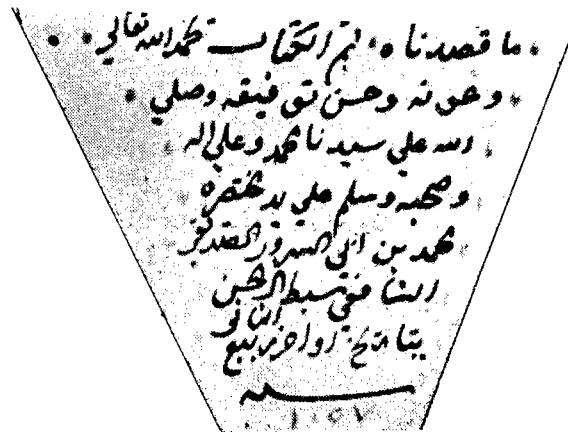 ما قصدناه تم الكتاب بحمد الله تعالى
وعونه وحسن توفيقه وصلي
الله علي سيدنا محمد وعلي اله
وصحبه وسلم علي يد مختصره
محمد بن ابي السرور الصديقي
الشافعي سبط ال الحسن
بتاريخ اواخر ربيع الثاني
سنة
١٠٥٧